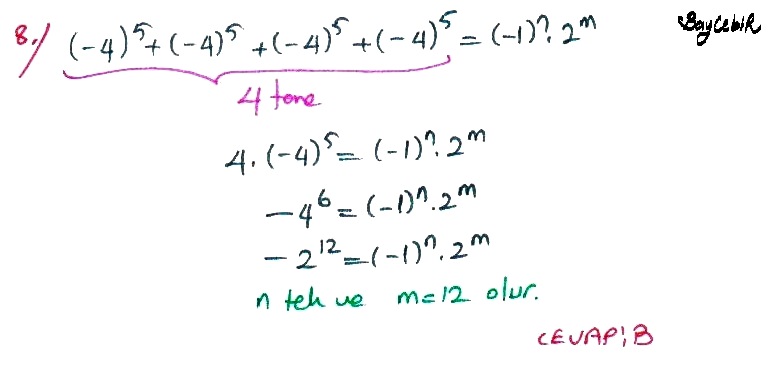 8.) (-4)⁵+(-4)⁵+(-4)⁵+(-4)⁵=(-1)ⁿ.2ᵐ
BayCebir
4 tane
4.(-4)⁵=(-1)ⁿ.2ᵐ
-4⁶=(-1)ⁿ.2ᵐ
-2¹²=(-1)ⁿ.2ᵐ
n tek ve m=12 olur.
CEVAP:B